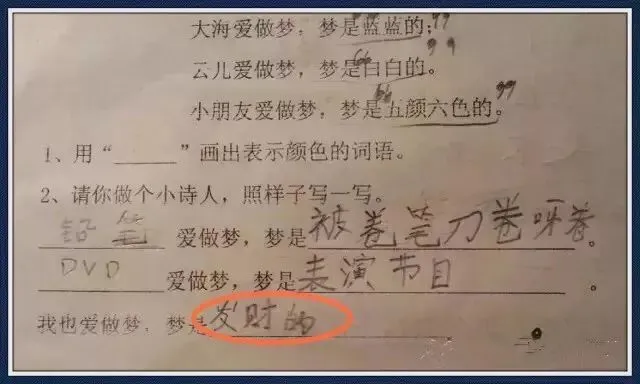 大海爱做梦，梦是蓝蓝的；
云儿爱做梦，梦是白白的。
小朋友爱做梦，梦是五颜六色的。
1、用“____”画出表示颜色的词语。
2、请你做个小诗人，照样子写一写。
铅笔 爱做梦，梦是被卷笔刀卷呀卷。
DVD 爱做梦，梦是表演节目。
我也爱做梦，梦是发财的。